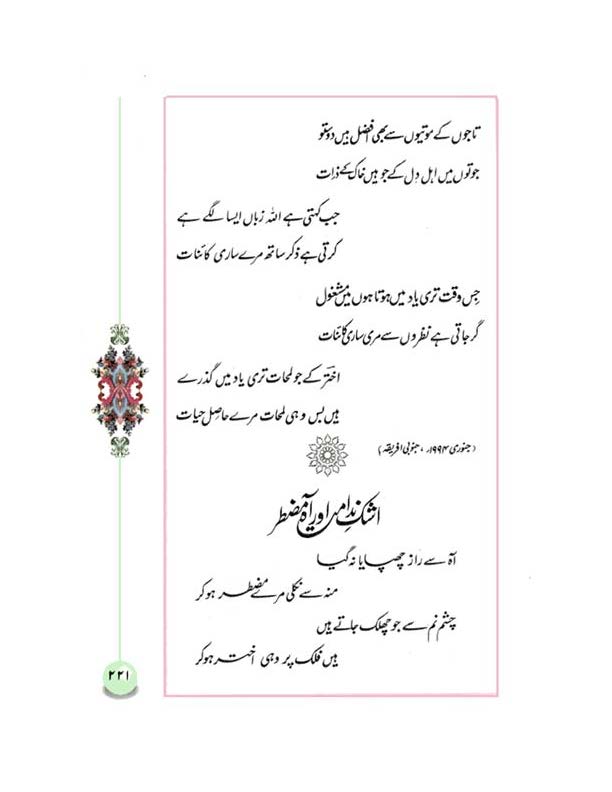 تاجوں کے موتیوں سے بھی افضل ہیں دوستو
جوتوں میں اہل دل کے جو ہیں خاک کے ذرات
جب کہتی ہے اللہ زباں ایسا لگے ہے
کرتی ہے ذکر ساتھ مرے ساری کائنات
جس وقت تری یاد میں ہوتا ہوں میں مشغول
گر جاتی ہے نظروں سے مری ساری کائنات
اخترؔ کے جو لمحات تری یاد میں گذرے
ہیں بس وہی لمحات مرے حاصلِ حیات
(جنوری ۱۹۹۴ء، جنوبی افریقہ)
اشکِ ندامت اور آہِ مضطر
آہ سے راز چھپایا نہ گیا
منہ سے نکلی مرے مضطر ہوکر
چشمِ نم سے جو چھلک جاتے ہیں
ہیں فلک پر وہی اختر ہوکر
۲۲۱